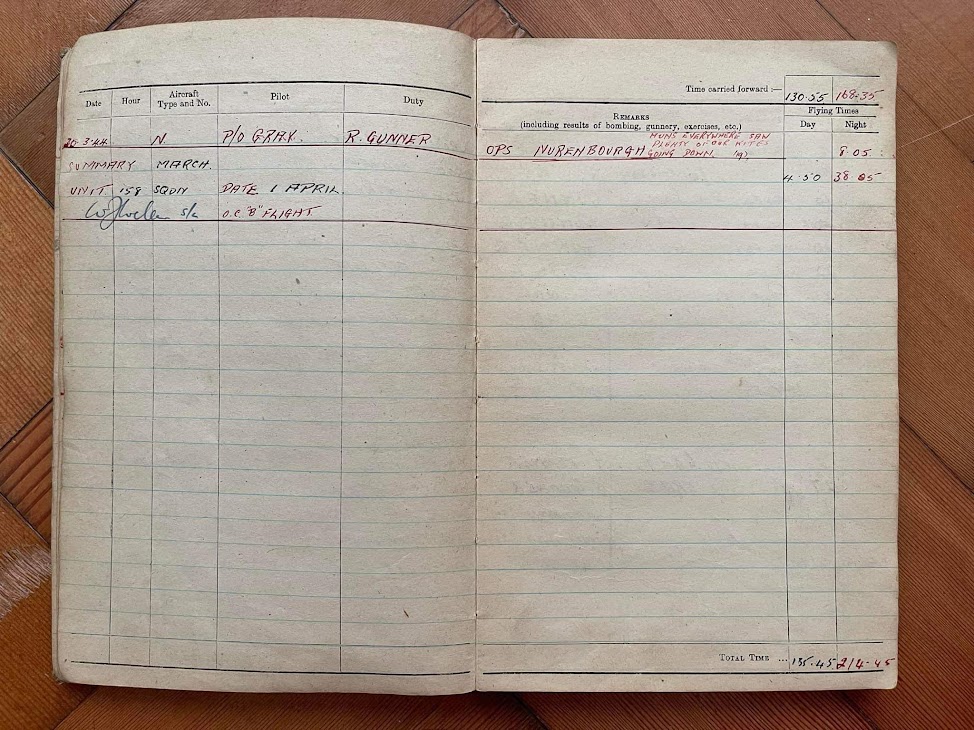 Date Hour Aircraft Type and No. Pilot Duty
30·3·44 N P/O GRAY. R. GUNNER
SUMMARY MARCH.
UNIT 158 SQDN DATE 1 APRIL.
S/L O.C. "B" FLIGHT
Time carried forward :— 130·55 168·35
REMARKS
(including results of bombing, gunnery, exercises, etc.)
Flying Times
Day Night
OPS NURENBOURGH
HUNS EVERYWHERE SAW
PLENTY OF OUR KITES
GOING DOWN.
8·05
4·50 38·05
TOTAL TIME ... 135·45 214·45